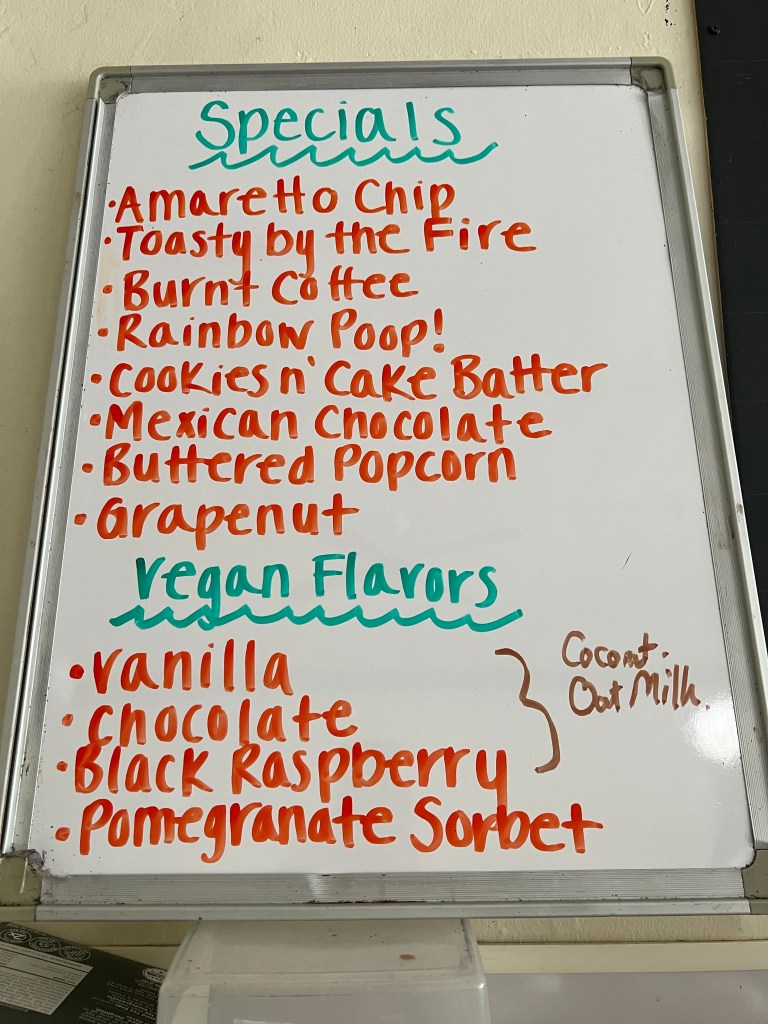 Specials
·Amaretto Chip
·Toasty by the Fire
·Burnt Coffee
·Rainbow Poop!
·Cookies n' Cake Batter
·Mexican Chocolate
·Buttered Popcorn
·Grapenut
Vegan Flavors
·Vanilla
·Chocolate
·Black Raspberry
Coconut.
Oat Milk.
·Pomegranate Sorbet